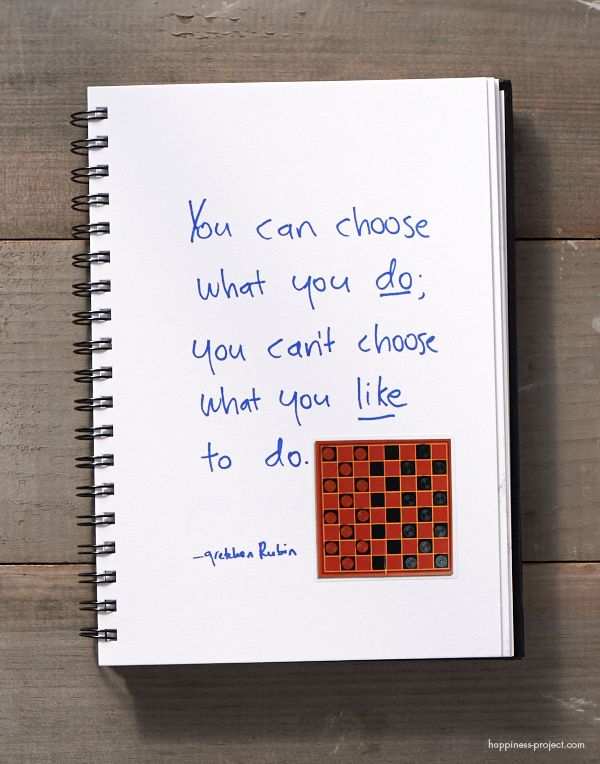 You can choose
what you do;
you can't choose
what you like
to do.
—gretchen Rubin
happiness-project.com